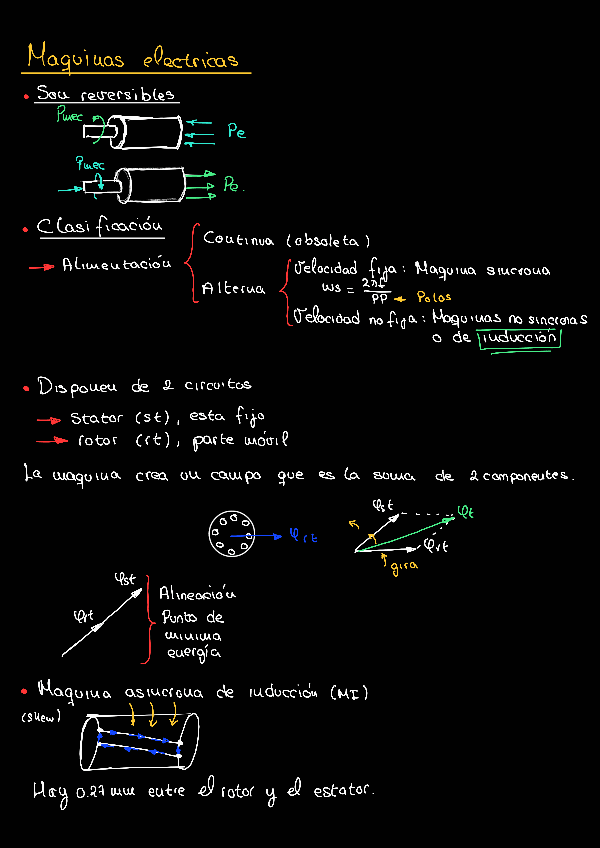 Maquinas electricas
• Son reversibles
Pmec
Pe
Pmec
Pe.
• Clasificación
→ Alimentación
Continua (obsoleta)
Alterna
Velocidad fija: Maquina sincrona
ws = 2πf / PP ← Polos
Velocidad no fija: Maquinas no sincronas
o de inducción
• Disponen de 2 circuitos
→ Stator (st), esta fijo
→ rotor (rt), parte móvil
La maquina crea un campo que es la suma de 2 componentes.
φrt
φst
φt
φrt
gira
φst
φrt
Alineación
Punto de
minima
energía
• Maquina asincrona de inducción (MI)
(skew)
Hay 0.27 mm entre el rotor y el estator.